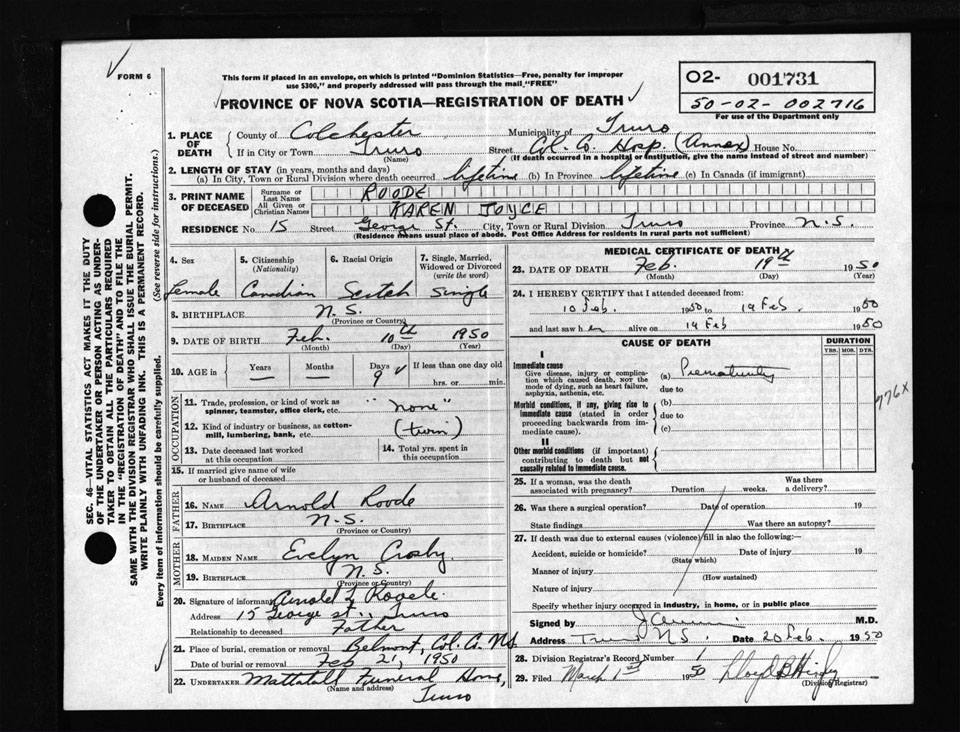 FORM 6
This form if placed in an envelope, on which is printed "Dominion Statistics—Free, penalty for improper
use $300," and properly addressed will pass through the mail "FREE"
02- 001731
50-02-002716
For use of the Department only
PROVINCE OF NOVA SCOTIA—REGISTRATION OF DEATH
1. PLACE OF DEATH County of Colchester Municipality of Truro
If in City or Town Truro (Name) Street Col. Co. Hosp. (Annex) House No.
(If death occurred in a hospital or institution, give the name instead of street and number)
2. LENGTH OF STAY (in years, months and days)
(a) In City, Town or Rural Division where death occurred lifetime (b) In Province lifetime (c) In Canada (if immigrant)
3. PRINT NAME OF DECEASED Surname or Last Name ROODE
All Given or Christian Names KAREN JOYCE
RESIDENCE No. 15 Street George St. City, Town or Rural Division Truro Province N.S.
(Residence means usual place of abode. Post Office Address for residents in rural parts not sufficient)
4. Sex 5. Citizenship (Nationality) 6. Racial Origin 7. Single, Married, Widowed or Divorced (write the word)
female Canadian Scotch Single
8. BIRTHPLACE N.S.
(Province or Country)
9. DATE OF BIRTH Feb. 10th 1950
(Month) (Day) (Year)
10. AGE in Years — Months — Days 9 If less than one day old
hrs. or min.
OCCUPATION
11. Trade, profession, or kind of work as
spinner, teamster, office clerk, etc. "none"
12. Kind of industry or business, as cotton-
mill, lumbering, bank, etc. (twin)
13. Date deceased last worked
at this occupation
14. Total yrs. spent in
this occupation
15. If married give name of wife
or husband of deceased
FATHER
16. NAME Arnold Roode
17. BIRTHPLACE N.S.
(Province or Country)
MOTHER
18. MAIDEN NAME Evelyn Crosby.
19. BIRTHPLACE N.S.
(Province or Country)
20. Signature of informant Arnold L Roode
Address 15 George St., Truro
Relationship to deceased Father
21. Place of burial, cremation or removal Belmont, Col. Co. N.S.
Date of burial or removal Feb 21, 1950
22. UNDERTAKER Mattatall Funeral Home,
(Name and address) Truro
MEDICAL CERTIFICATE OF DEATH
23. DATE OF DEATH Feb. 19th 1950
(Month) (Day) (Year)
24. I HEREBY CERTIFY that I attended deceased from:
10 Feb. 1950 to 19 Feb 1950
and last saw h er alive on 19 Feb 1950
CAUSE OF DEATH DURATION
YRS. MOS. DYS.
I
Immediate cause
Give disease, injury or complica-
tion which caused death, NOT the
mode of dying, such as heart failure,
asphyxia, asthenia, etc.
(a) Prematurity
due to
Morbid conditions, if any, giving rise to
immediate cause (stated in order
proceeding backwards from im-
mediate cause).
(b)
due to
(c)
II
Other morbid conditions (if important)
contributing to death but not
causally related to immediate cause.
776X
25. If a woman, was the death
associated with pregnancy? Duration weeks. Was there
a delivery?
26. Was there a surgical operation? Date of operation 19
State findings Was there an autopsy?
27. If death was due to external causes (violence) fill in also the following:—
Accident, suicide or homicide? Date of injury 19
(State which)
Manner of injury
(How sustained)
Nature of injury
Specify whether injury occurred in industry, in home, or in public place
Signed by M.D.
Address Truro N.S. Date 20 Feb. 1950
28. Division Registrar's Record Number 1
29. Filed March 1st 1950
(Division Registrar)
SEC. 46—VITAL STATISTICS ACT MAKES IT THE DUTY
OF THE UNDERTAKER OR PERSON ACTING AS UNDER-
TAKER TO OBTAIN ALL THE PARTICULARS REQUIRED
IN THE "REGISTRATION OF DEATH" AND TO FILE THE
SAME WITH THE DIVISION REGISTRAR WHO SHALL ISSUE THE BURIAL PERMIT.
WRITE PLAINLY WITH UNFADING INK. THIS IS A PERMANENT RECORD.
Every item of information should be carefully supplied. (See reverse side for instructions.)